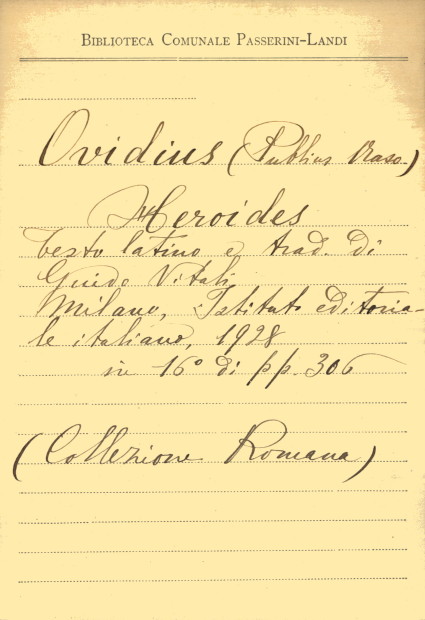 BIBLIOTECA COMUNALE PASSERINI-LANDI
Ovidius (Publius Naso)
Heroides
testo latino e trad. di
Guido Vitali
Milano, Istituto editoria-
le italiano, 1928
in 16° di pp. 306
(Collezione Romana)